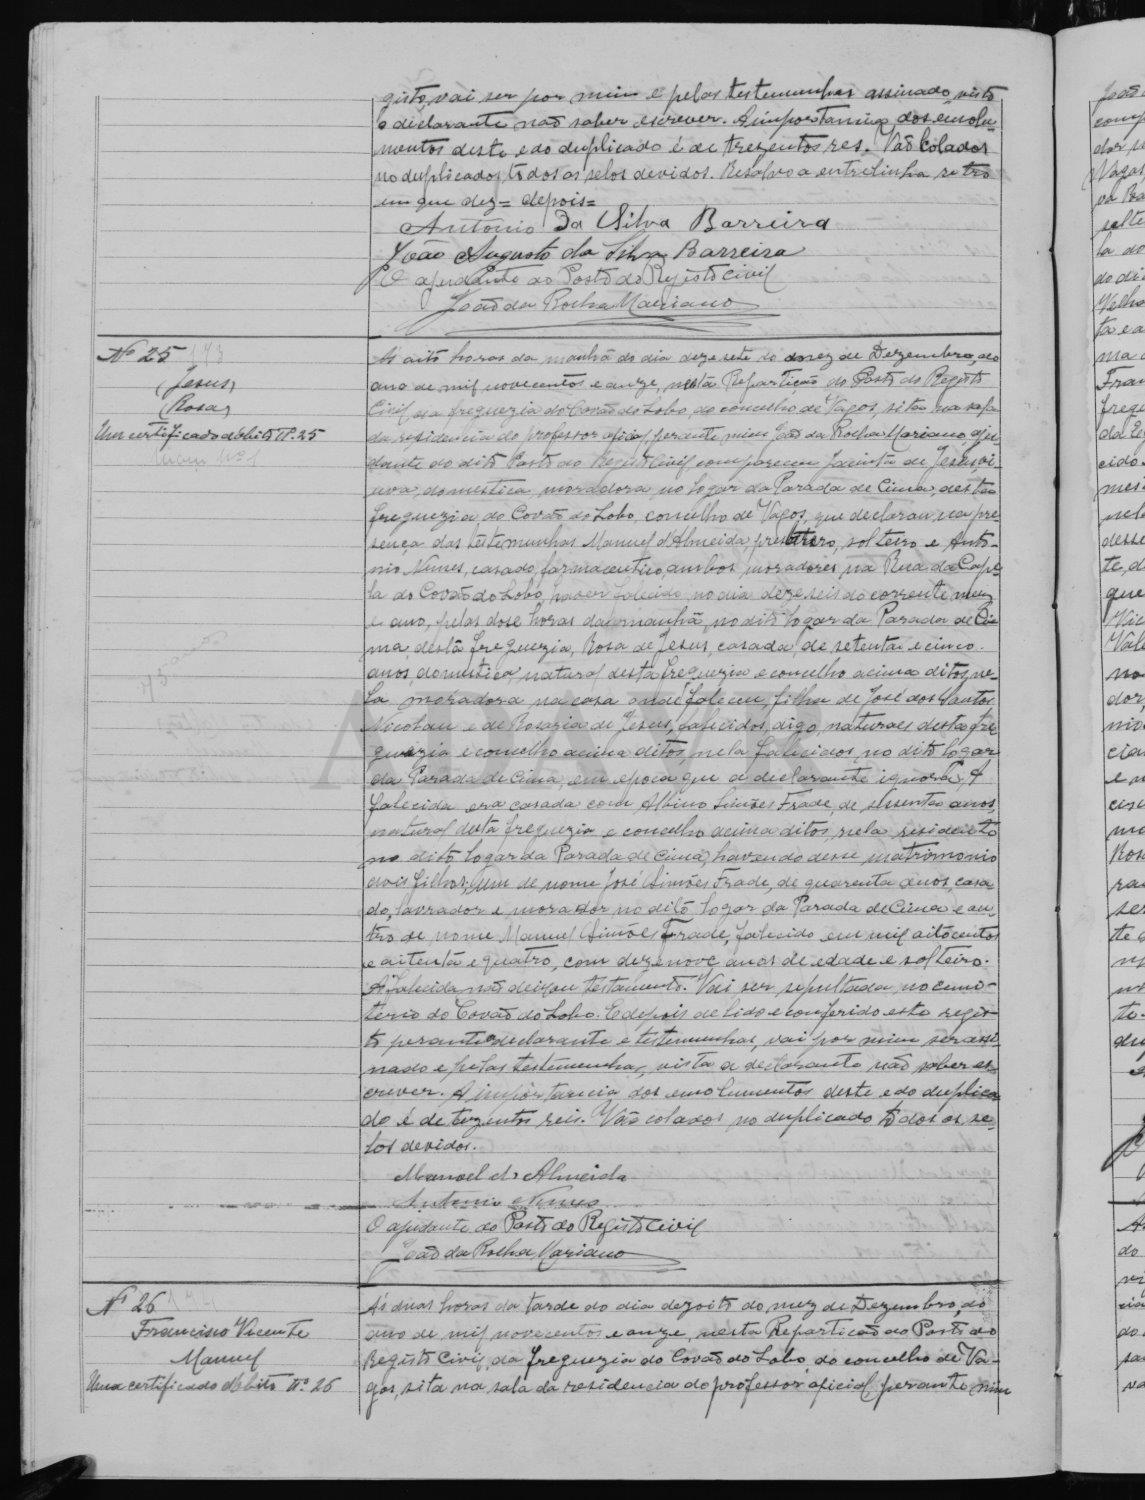 gisto, vai ser por mim e pelas testemunhas assinado, visto
o declarante não saber escrever. A importancia dos emolu-
mentos deste e do duplicado é de trezentos res. Vão colados
no duplicado, todos os selos devidos. Resalvo a entrelinha retro
em que diz= depois=
Antonio da Silva Barreira
João Augusto da Silva Barreira
O ajudante do Posto do Registo Civil
João da Rocha Mariano
Nº 25 173
Jesus,
Rosa,
Um certificado de obito Nº 25
Às oito horas da manhã do dia dezesete do mez de Dezembro, do
ano de mil novecentos e onze, nesta Repartição do Posto do Registo
Civil da freguezia do Covão do Lobo, do concelho de Vagos, sita na sala
da residencia do professor oficial, perante mim João da Rocha Mariano, aju-
dante do dito Posto do Registo Civil compareceu Jacinta de Jesus, vi-
uva, domestica, moradora, no logar da Parada de Cima, desta
freguezia do Covão do Lobo, concelho de Vagos, que declarou, na pre-
sença das testemunhas Manuel d'Almeida, presbitero, solteiro e Anto-
nio Nunes, casado, farmaceutico, ambos moradores, na Rua da Cape-
la do Covão do Lobo, haver falecido, no dia dezeseis do corrente mez
e ano, pelas dose horas da manhã, no dito logar da Parada de Ci-
ma, desta freguezia, Rosa de Jesus, casada, de setenta e cinco
anos, domestica, natural desta freguezia e concelho acima ditos, ne-
la moradora na casa onde faleceu, filha de José dos Santos
Nicolau e de Rosaria de Jesus, falecidos, digo, naturaes desta fre
guezia e concelho acima ditos, nela falecidos, no dito logar
da Parada de Cima, em epoca que a declarante ignora. A
falecida era casada com Albino Simões Frade, de setenta anos,
natural desta freguezia e concelho acima ditos, nela residente
no dito logar da Parada de Cima, havendo desse matrimonio
dois filhos, um de nome José Simões Frade, de quarenta anos, casa
do, lavrador e morador no dito logar da Parada de Cima e ou-
tro de nome Manuel Simões Frade, falecido em mil oitocentos
e oitenta e quatro, com dezenove anos de edade e solteiro.
A falecida não deixou testamento. Vai ser sepultada no cemi-
terio do Covão do Lobo. E depois de lido e conferido este regis-
to perante a declarante e testemunhas, vai por mim ser assi-
nado e pelas testemunhas, visto a declarante não saber es-
crever. A importancia dos emolumentos deste e do duplica
do é de trezentos reis. Vão colados no duplicado todos os se-
los devidos.
Manoel d'Almeida
Antonio Nunes
O ajudante do Posto do Registo Civil
João da Rocha Mariano
Nº 26 174
Francisco Vicente
Manuel
Um certificado de obito Nº 26
Às duas horas da tarde do dia dezoito do mez de Dezembro, do
ano de mil novecentos e onze, nesta Repartição do Posto do
Registo Civil, da freguezia do Covão do Lobo, do concelho de Va-
gos, sita na sala da residencia do professor oficial, perante mim